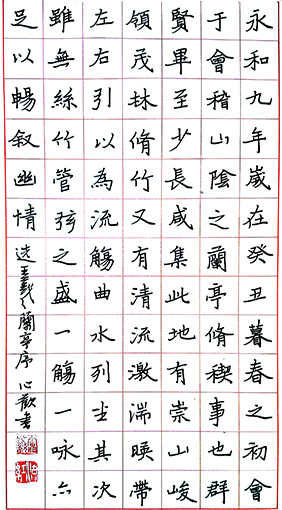 永和九年歲在癸丑暮春之初會
于會稽山陰之蘭亭脩稧事也群
賢畢至少長咸集此地有崇山峻
領茂林脩竹又有清流激湍暎帶
左右引以為流觴曲水列坐其次
雖無絲竹管弦之盛一觴一咏亦
足以暢叙幽情 选王羲之蘭亭序 心歡書